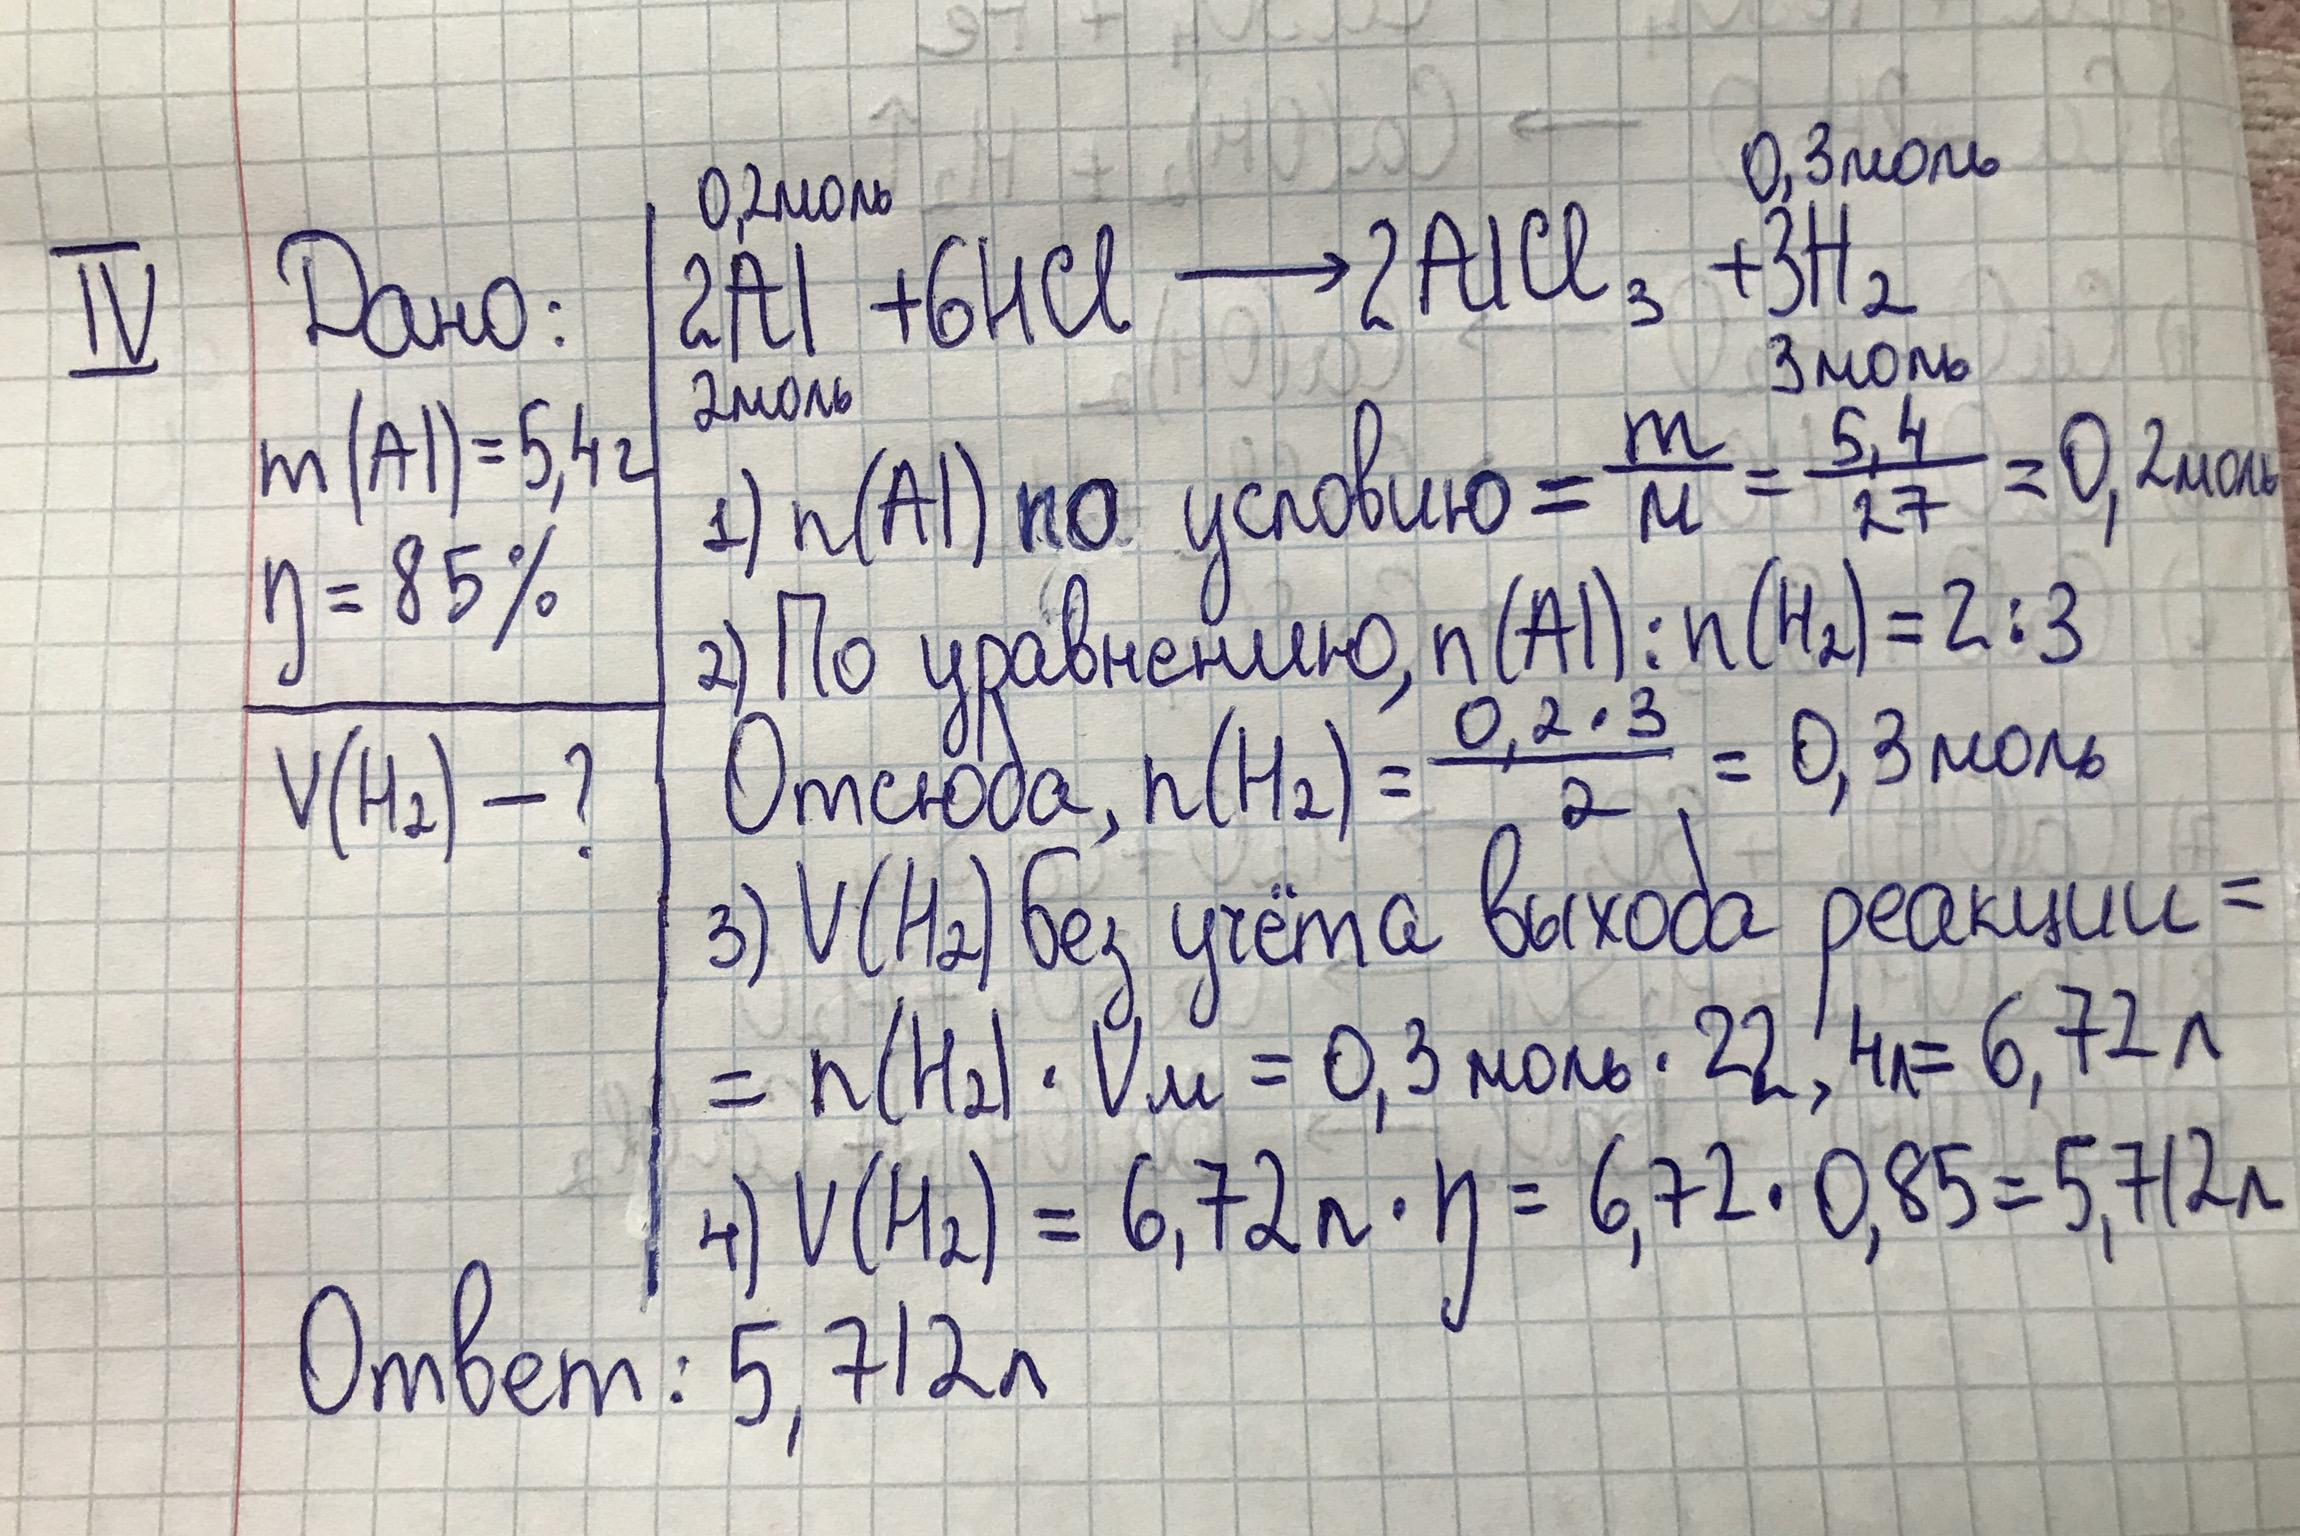 IV
Дано:
m(Al)=5,4г
η=85%
V(H₂)–?
0,2моль 0,3моль
2Al +6HCl ⟶ 2AlCl₃ +3H₂
2моль 3моль
1) n(Al) по условию = m/M = 5,4/27 = 0,2моль
2) По уравнению, n(Al):n(H₂)=2:3
Отсюда, n(H₂)= 0,2·3/2 = 0,3моль
3) V(H₂) без учёта выхода реакции =
= n(H₂)·Vм = 0,3моль·22,4л= 6,72л
4) V(H₂) = 6,72л·η = 6,72·0,85=5,712л
Ответ: 5,712л